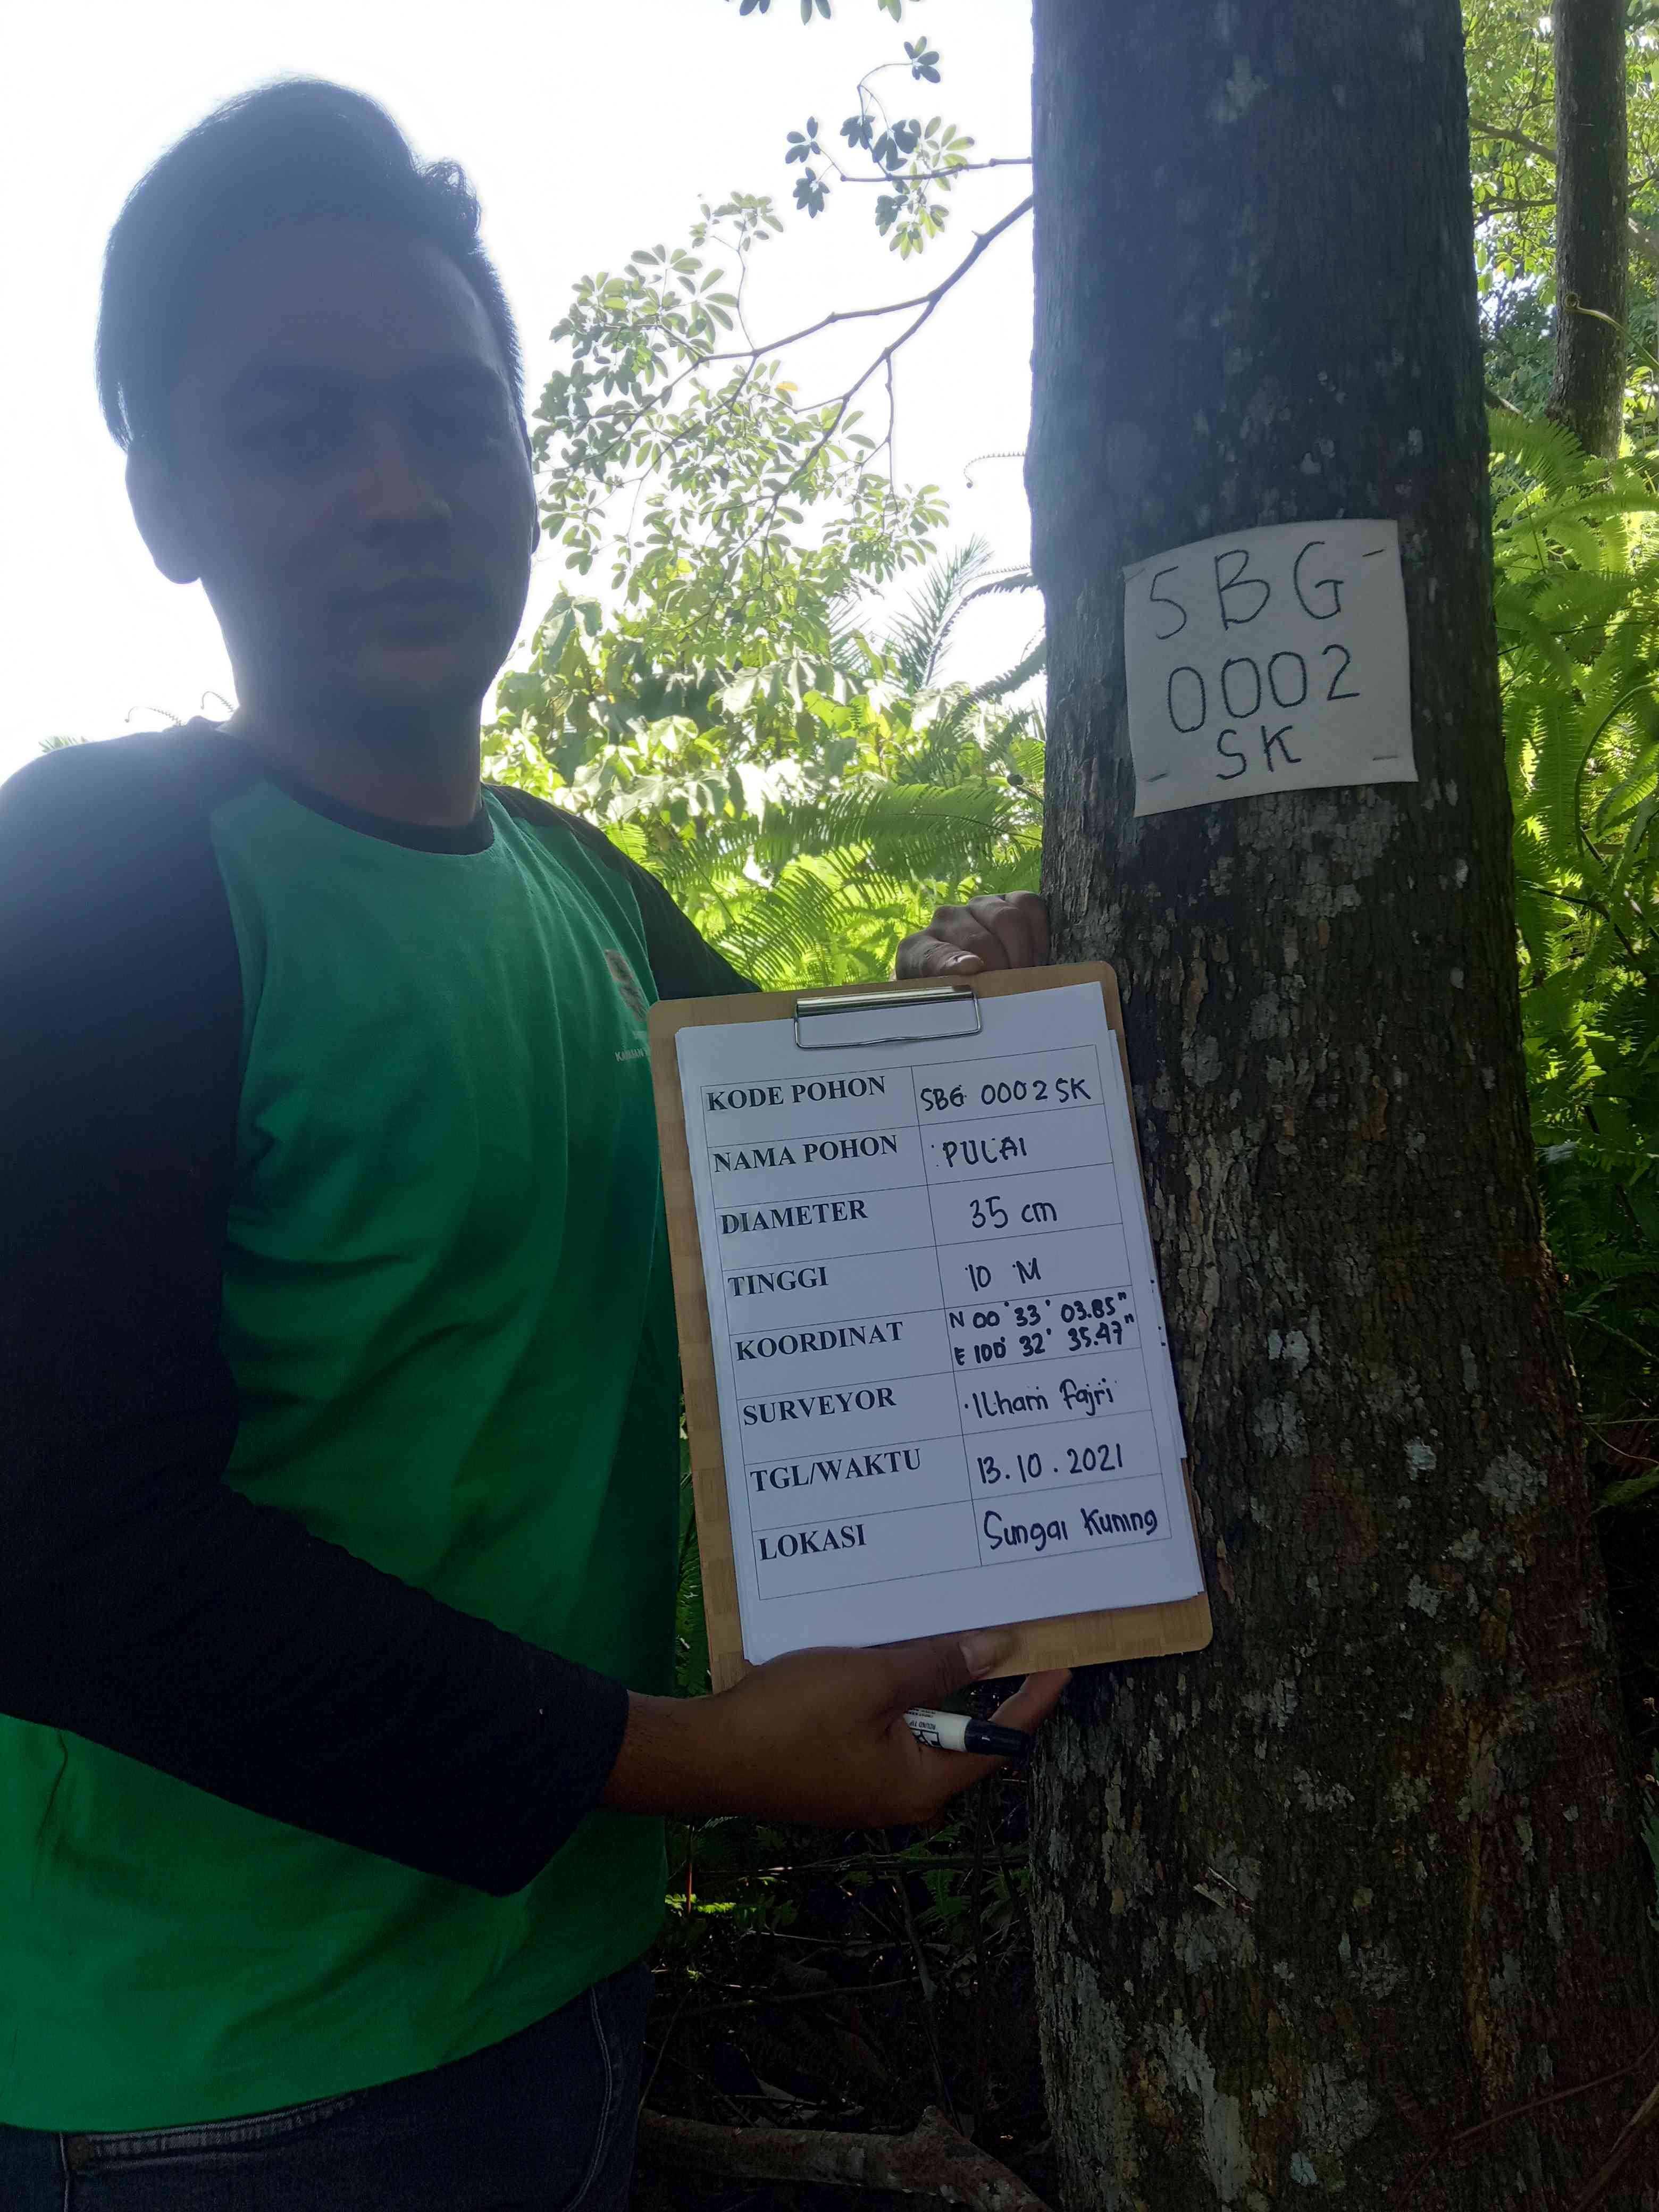 SBG
0002
SK
KODE POHON SBG 0002 SK
NAMA POHON PULAI
DIAMETER 35 cm
TINGGI 10 M
KOORDINAT N 00° 33' 03.85"
E 100° 32' 35.47"
SURVEYOR Ilham Fajri
TGL/WAKTU 13.10.2021
LOKASI Sungai Kuning
ROUND TIP